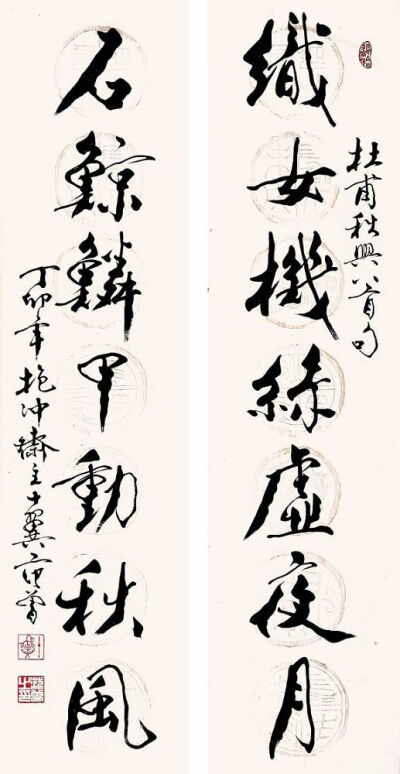 杜甫秋興八首句
織女機絲虛夜月
石鯨鱗甲動秋風
丁卯年抱冲齋主十翼范曾